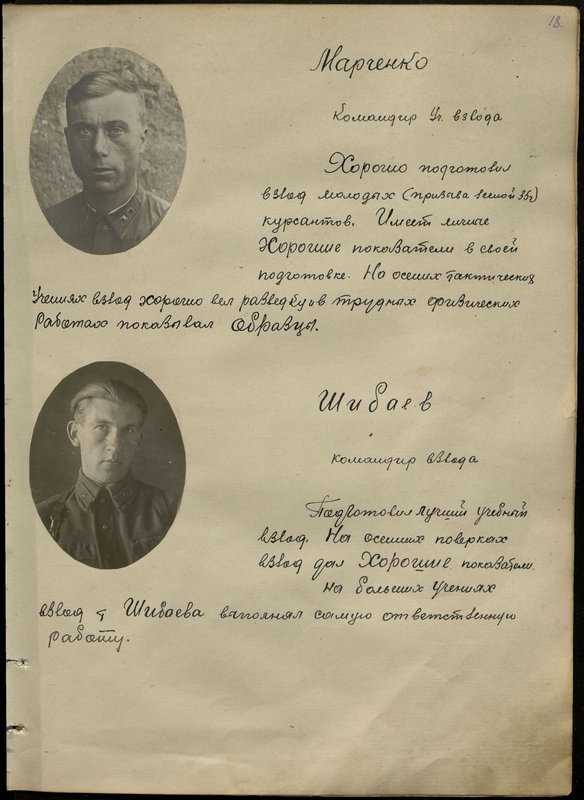 18.
Марченко
Командир Уч. взвода
Хорошо подготовил
взвод молодых (призыва весной 35г)
курсантов. Имеет личные
Хорошие показатели в своей
подготовке. На осених тактических
Учениях взвод хорошо вел разведку и в трудных физических
работах показывал Образцы.
Шибаев
Командир взвода
Подготовил лучший учебный
взвод. На осенних поверках
взвод дал Хорошие показатели.
На больших Учениях
взвод т Шибаева выполнял самую ответственную
работу.